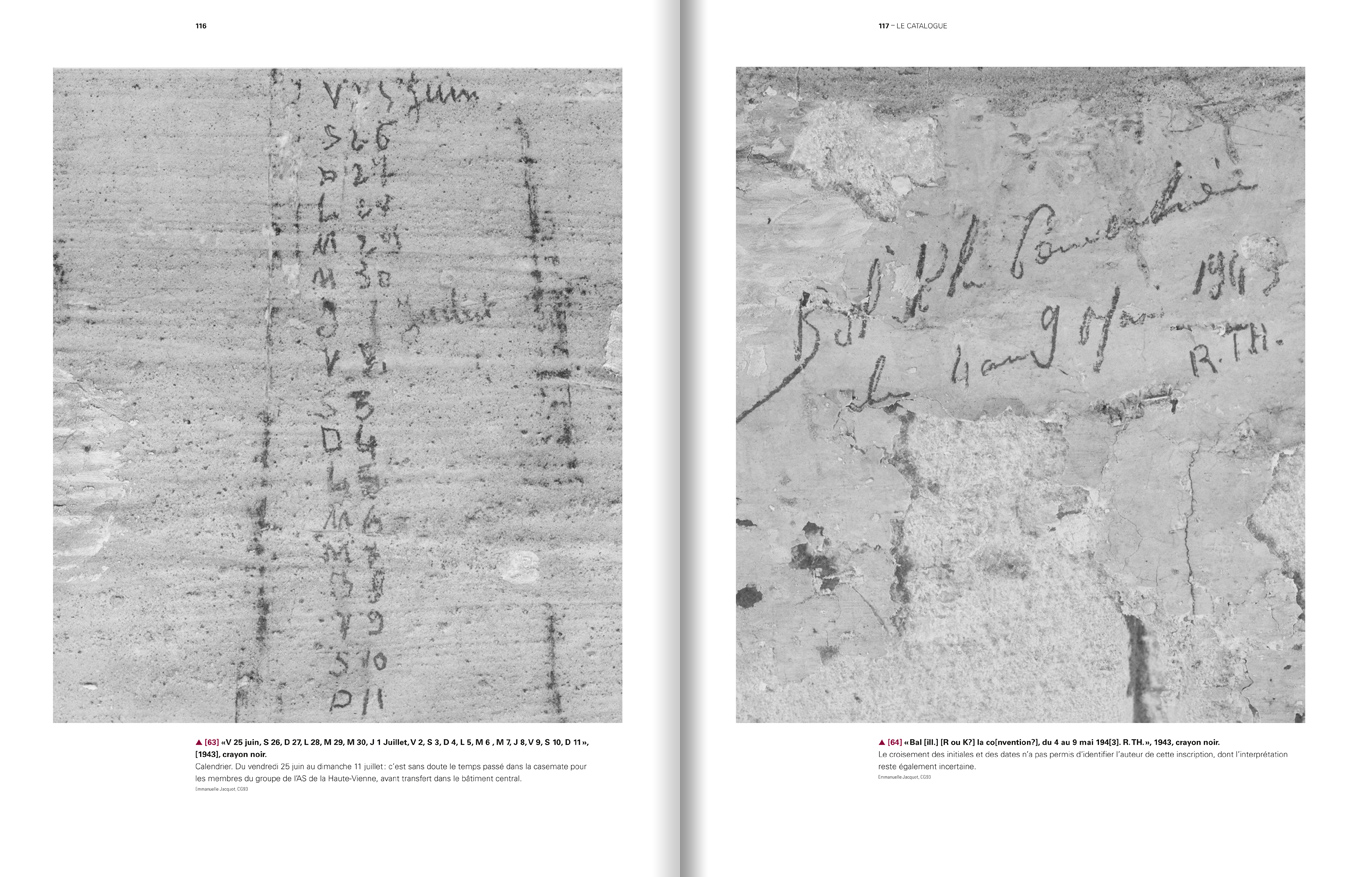 116
V 25 juin
S 26
D 27
L 28
M 29
M 30
J 1 Juillet
V 2
S 3
D 4
L 5
M 6
M 7
J 8
V 9
S 10
D 11
▲ [63] «V 25 juin, S 26, D 27, L 28, M 29, M 30, J 1 Juillet, V 2, S 3, D 4, L 5, M 6 , M 7, J 8, V 9, S 10, D 11»,
[1943], crayon noir.
Calendrier. Du vendredi 25 juin au dimanche 11 juillet : c'est sans doute le temps passé dans la casemate pour
les membres du groupe de l'AS de la Haute-Vienne, avant transfert dans le bâtiment central.
Emmanuelle Jacquot, CG93
117 – LE CATALOGUE
Bal
1943
4 au 9 Mai
R.TH.
▲ [64] «Bal [ill.] [R ou K?] la co[nvention?], du 4 au 9 mai 194[3]. R. TH.», 1943, crayon noir.
Le croisement des initiales et des dates n'a pas permis d'identifier l'auteur de cette inscription, dont l'interprétation
reste également incertaine.
Emmanuelle Jacquot, CG93